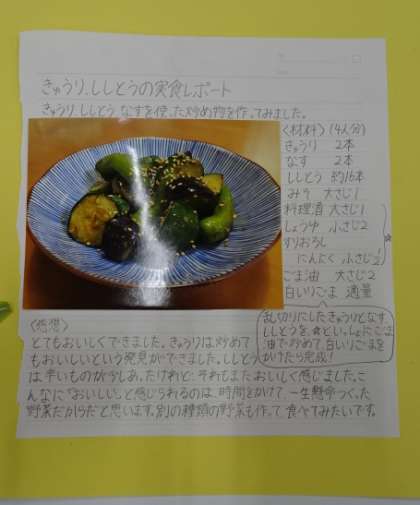 きゅうり、ししとうの実食レポート
きゅうり、ししとう、なすを使った炒め物を作ってみました。
<材料> (4人分)
きゅうり 2本
なす 2本
ししとう 約16本
みそ 大さじ1
料理酒 大さじ1
しょうゆ 小さじ2
すりおろし
にんにく 小さじ1/2
☆
ごま油 大さじ2
白いりごま 適量
乱切りにしたきゅうりとなす
ししとうを、☆といっしょにごま
油で炒めて、白いりごまを
かけたら完成!
<感想>
とてもおいしくできました。きゅうりは炒めて
もおいしいという発見ができました。ししとう
は辛いものが少しあったけれど、それもまたおいしく感じました。こ
んなに「おいしい」と感じられるのは、時間をかけて、一生懸命つくった
野菜だからだと思います。別の種類の野菜も作って食べてみたいです。